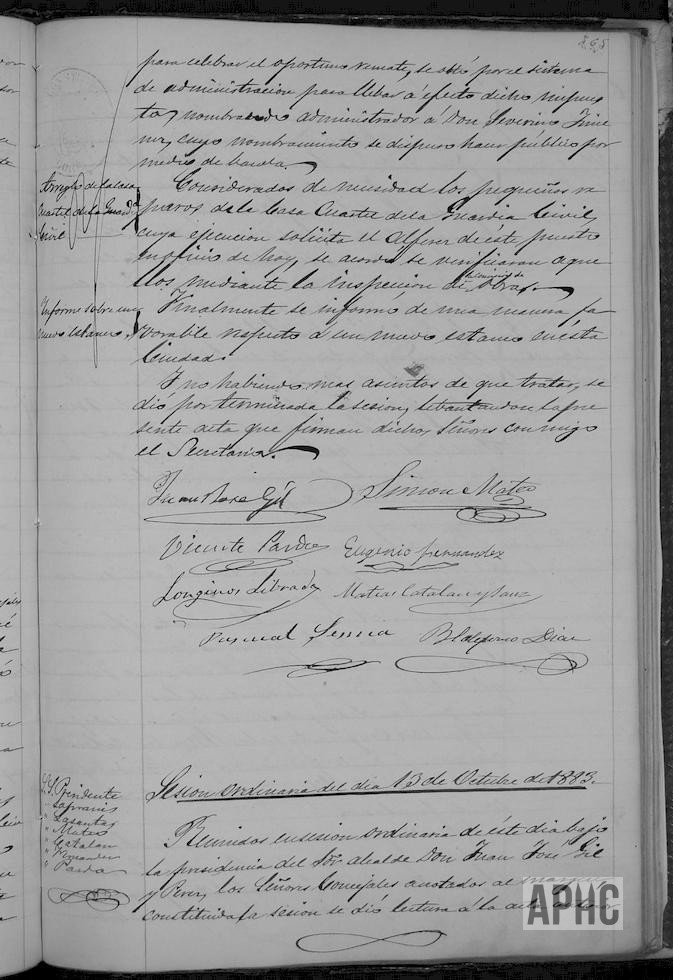 para celebrar el oportuno remate, se obtó por el sistema
de administracion para llebar á efecto dicho impues
to, nombrando administrador á Don Severino Jime
nez, cuyo nombramiento se dispuso hacer público por
medio de bando.
Arreglo de la Casa
Cuartel de la Guardia
Civil
Considerados de necesidad los pequeños re
paros de la Casa Cuartel de la Guardia Civil,
cuya ejecucion solicita el Alferez de éste puesto
en oficio de hoy, se acordó se verificaran aque
llos mediante la inspeccion de la Comision de Obras.
Informe sobre un
nuevo estanco.
Finalmente se informó de una manera fa
vorable respecto á un nuevo estanco en ésta
Ciudad.
Y no habiendo mas asuntos de que tratar, se
dió por terminada la sesion, lebantandose la pre
sente acta que firman dichos Señores conmigo
el Secretario.
Juan Jose Gil
Simon Mateo
Vicente Pardo
Eugenio Fernandez
Longinos Librada
Matias Catalan y Sanz
Pascual Serria
Yldefonso Diaz
S. S. Presidente
" Lasanta
" Mateo
" Catalan
" Fernandez
" Pardo
Sesion ordinaria del dia 13 de Octubre de 1883.
Reunidos en sesion ordinaria de éste dia bajo
la presidencia del Sor. Alcalde Don Juan José Gil
y Perez, los Señores Concejales anotados al margen
constituida la sesion se dió lectura á la acta anterior
APHC